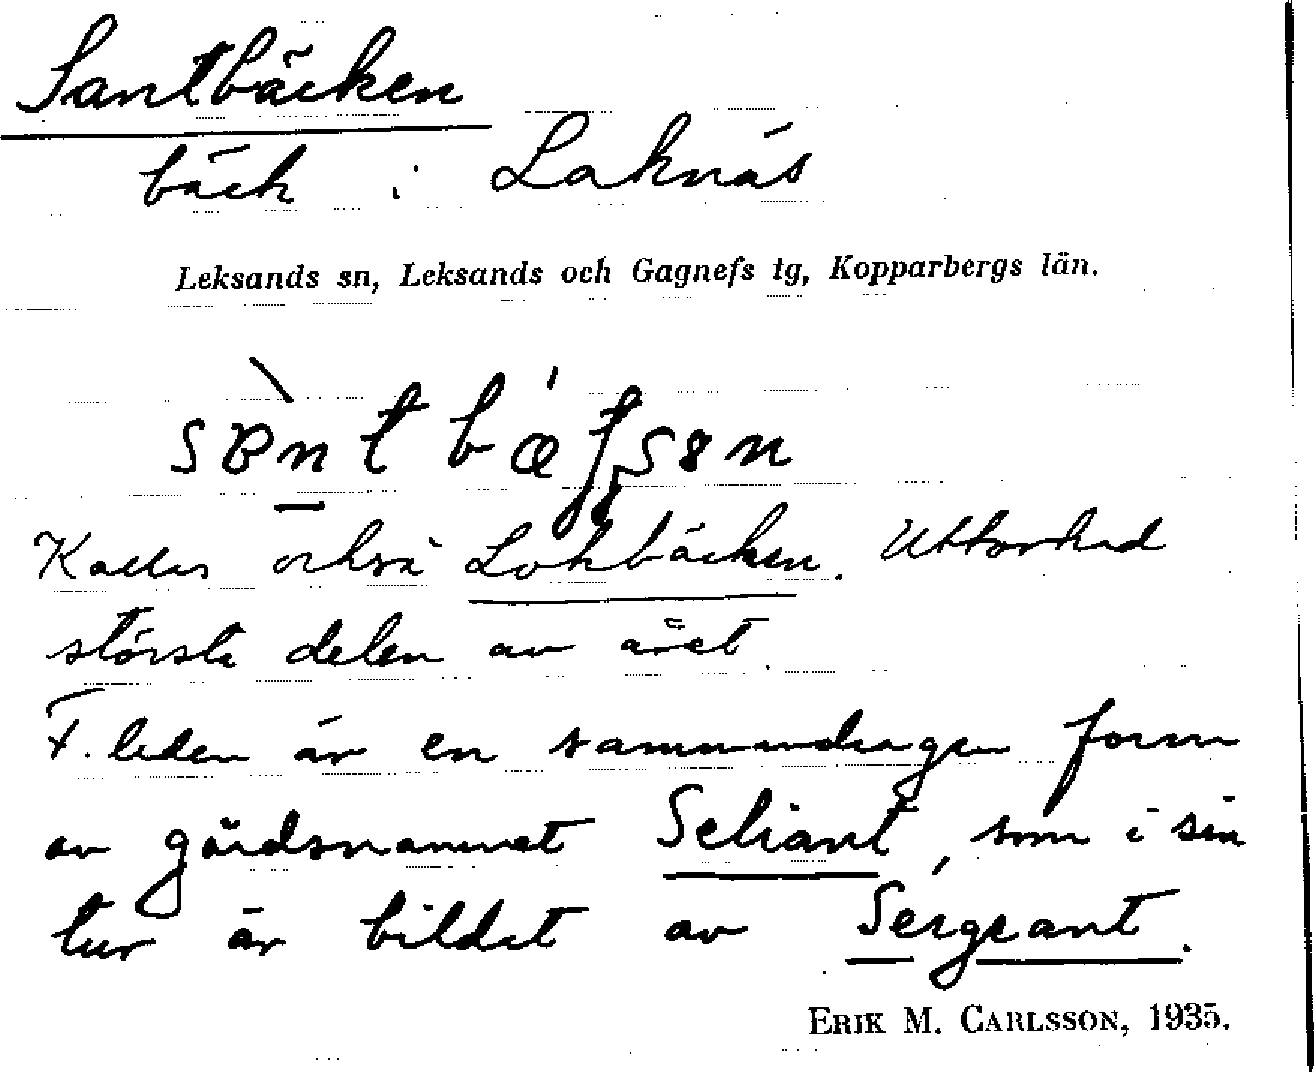 Santbäcken
bäck i Laknäs
Leksands sn, Leksands och Gagnefs tg, Kopparbergs län.
Kallas också Lokbäcken. Uttorkad
största delen av året.
F. leden är en sammandragen form
av gårdsnamnet Seliant, som i sin
tur är bildat av Sergeant.
ERIK M. CARLSSON, 1935.